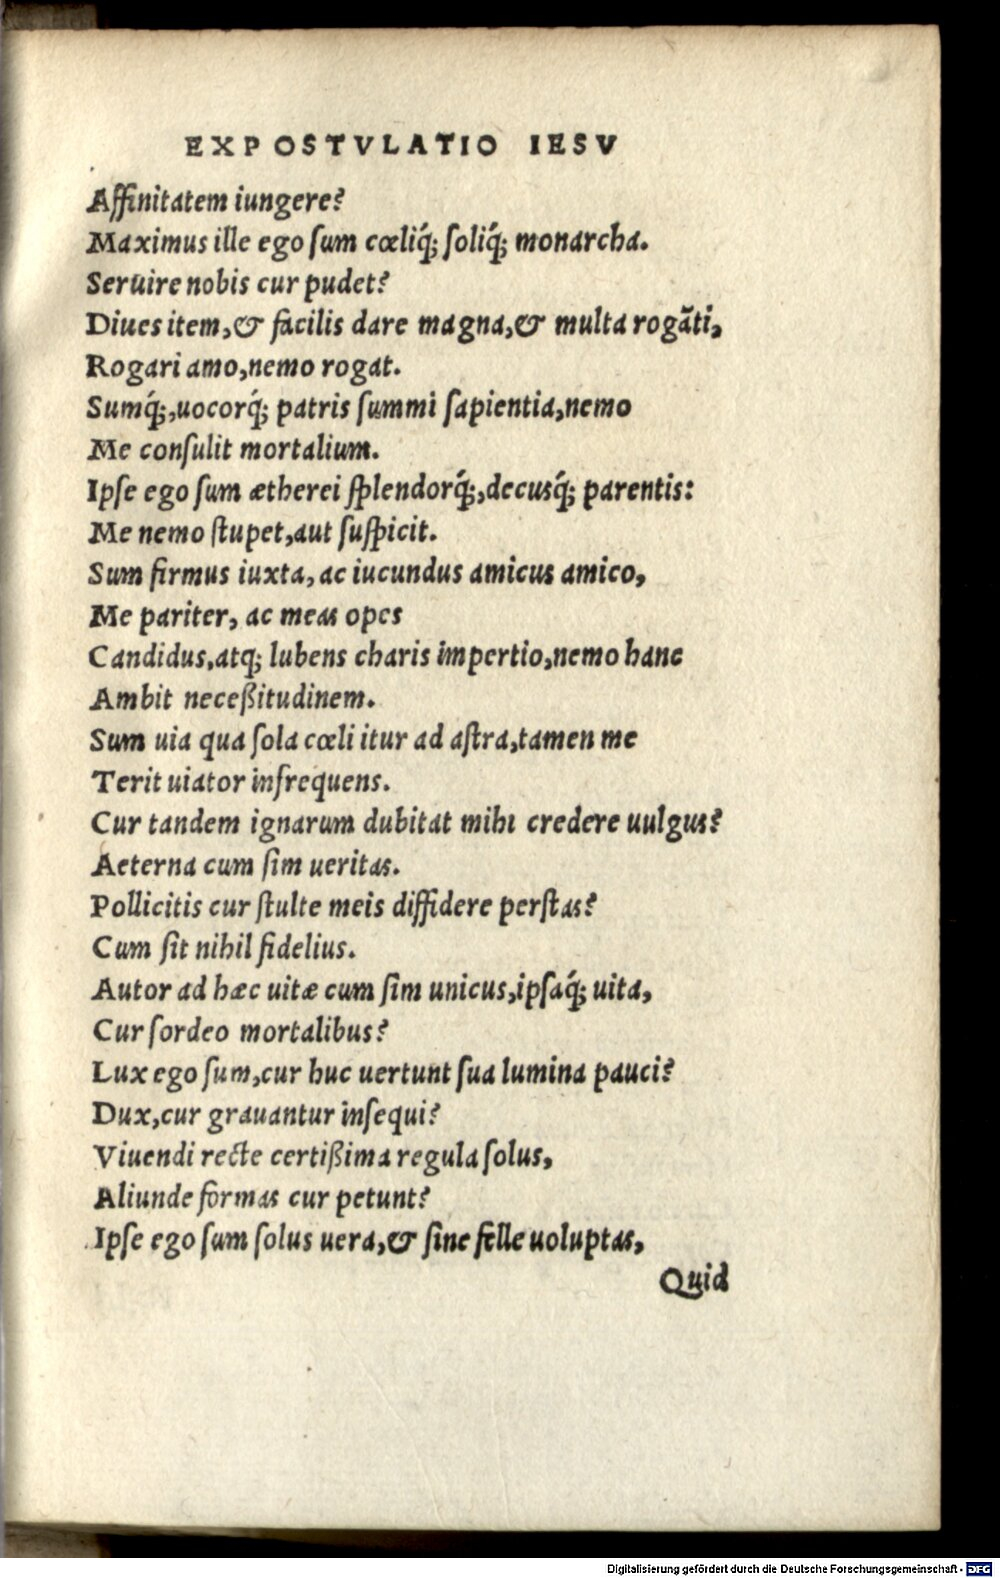 EXPOSTVLATIO IESV
Affinitatem iungere?
Maximus ille ego sum cœliq́; soliq́; monarcha.
Seruire nobis cur pudet?
Diues item, & facilis dare magna, & multa rogãti,
Rogari amo, nemo rogat.
Sumq́;, uocorq́; patris summi sapientia, nemo
Me consulit mortalium.
Ipse ego sum ætherei splendorq́;, decusq́; parentis:
Me nemo stupet, aut suspicit.
Sum firmus iuxta, ac iucundus amicus amico,
Me pariter, ac meas opes
Candidus, atq; lubens charis impertio, nemo hanc
Ambit neceßitudinem.
Sum uia qua sola cœli itur ad astra, tamen me
Terit uiator infrequens.
Cur tandem ignarum dubitat mihi credere uulgus?
Aeterna cum sim ueritas.
Pollicitis cur stulte meis diffidere perstas?
Cum sit nihil fidelius.
Autor ad hæc uitæ cum sim unicus, ipsaq́; uita,
Cur sordeo mortalibus?
Lux ego sum, cur huc uertunt sua lumina pauci?
Dux, cur grauantur insequi?
Viuendi recte certißima regula solus,
Aliunde formas cur petunt?
Ipse ego sum solus uera, & sine felle uoluptas,
Quid
Digitalisierung gefördert durch die Deutsche Forschungsgemeinschaft - DFG